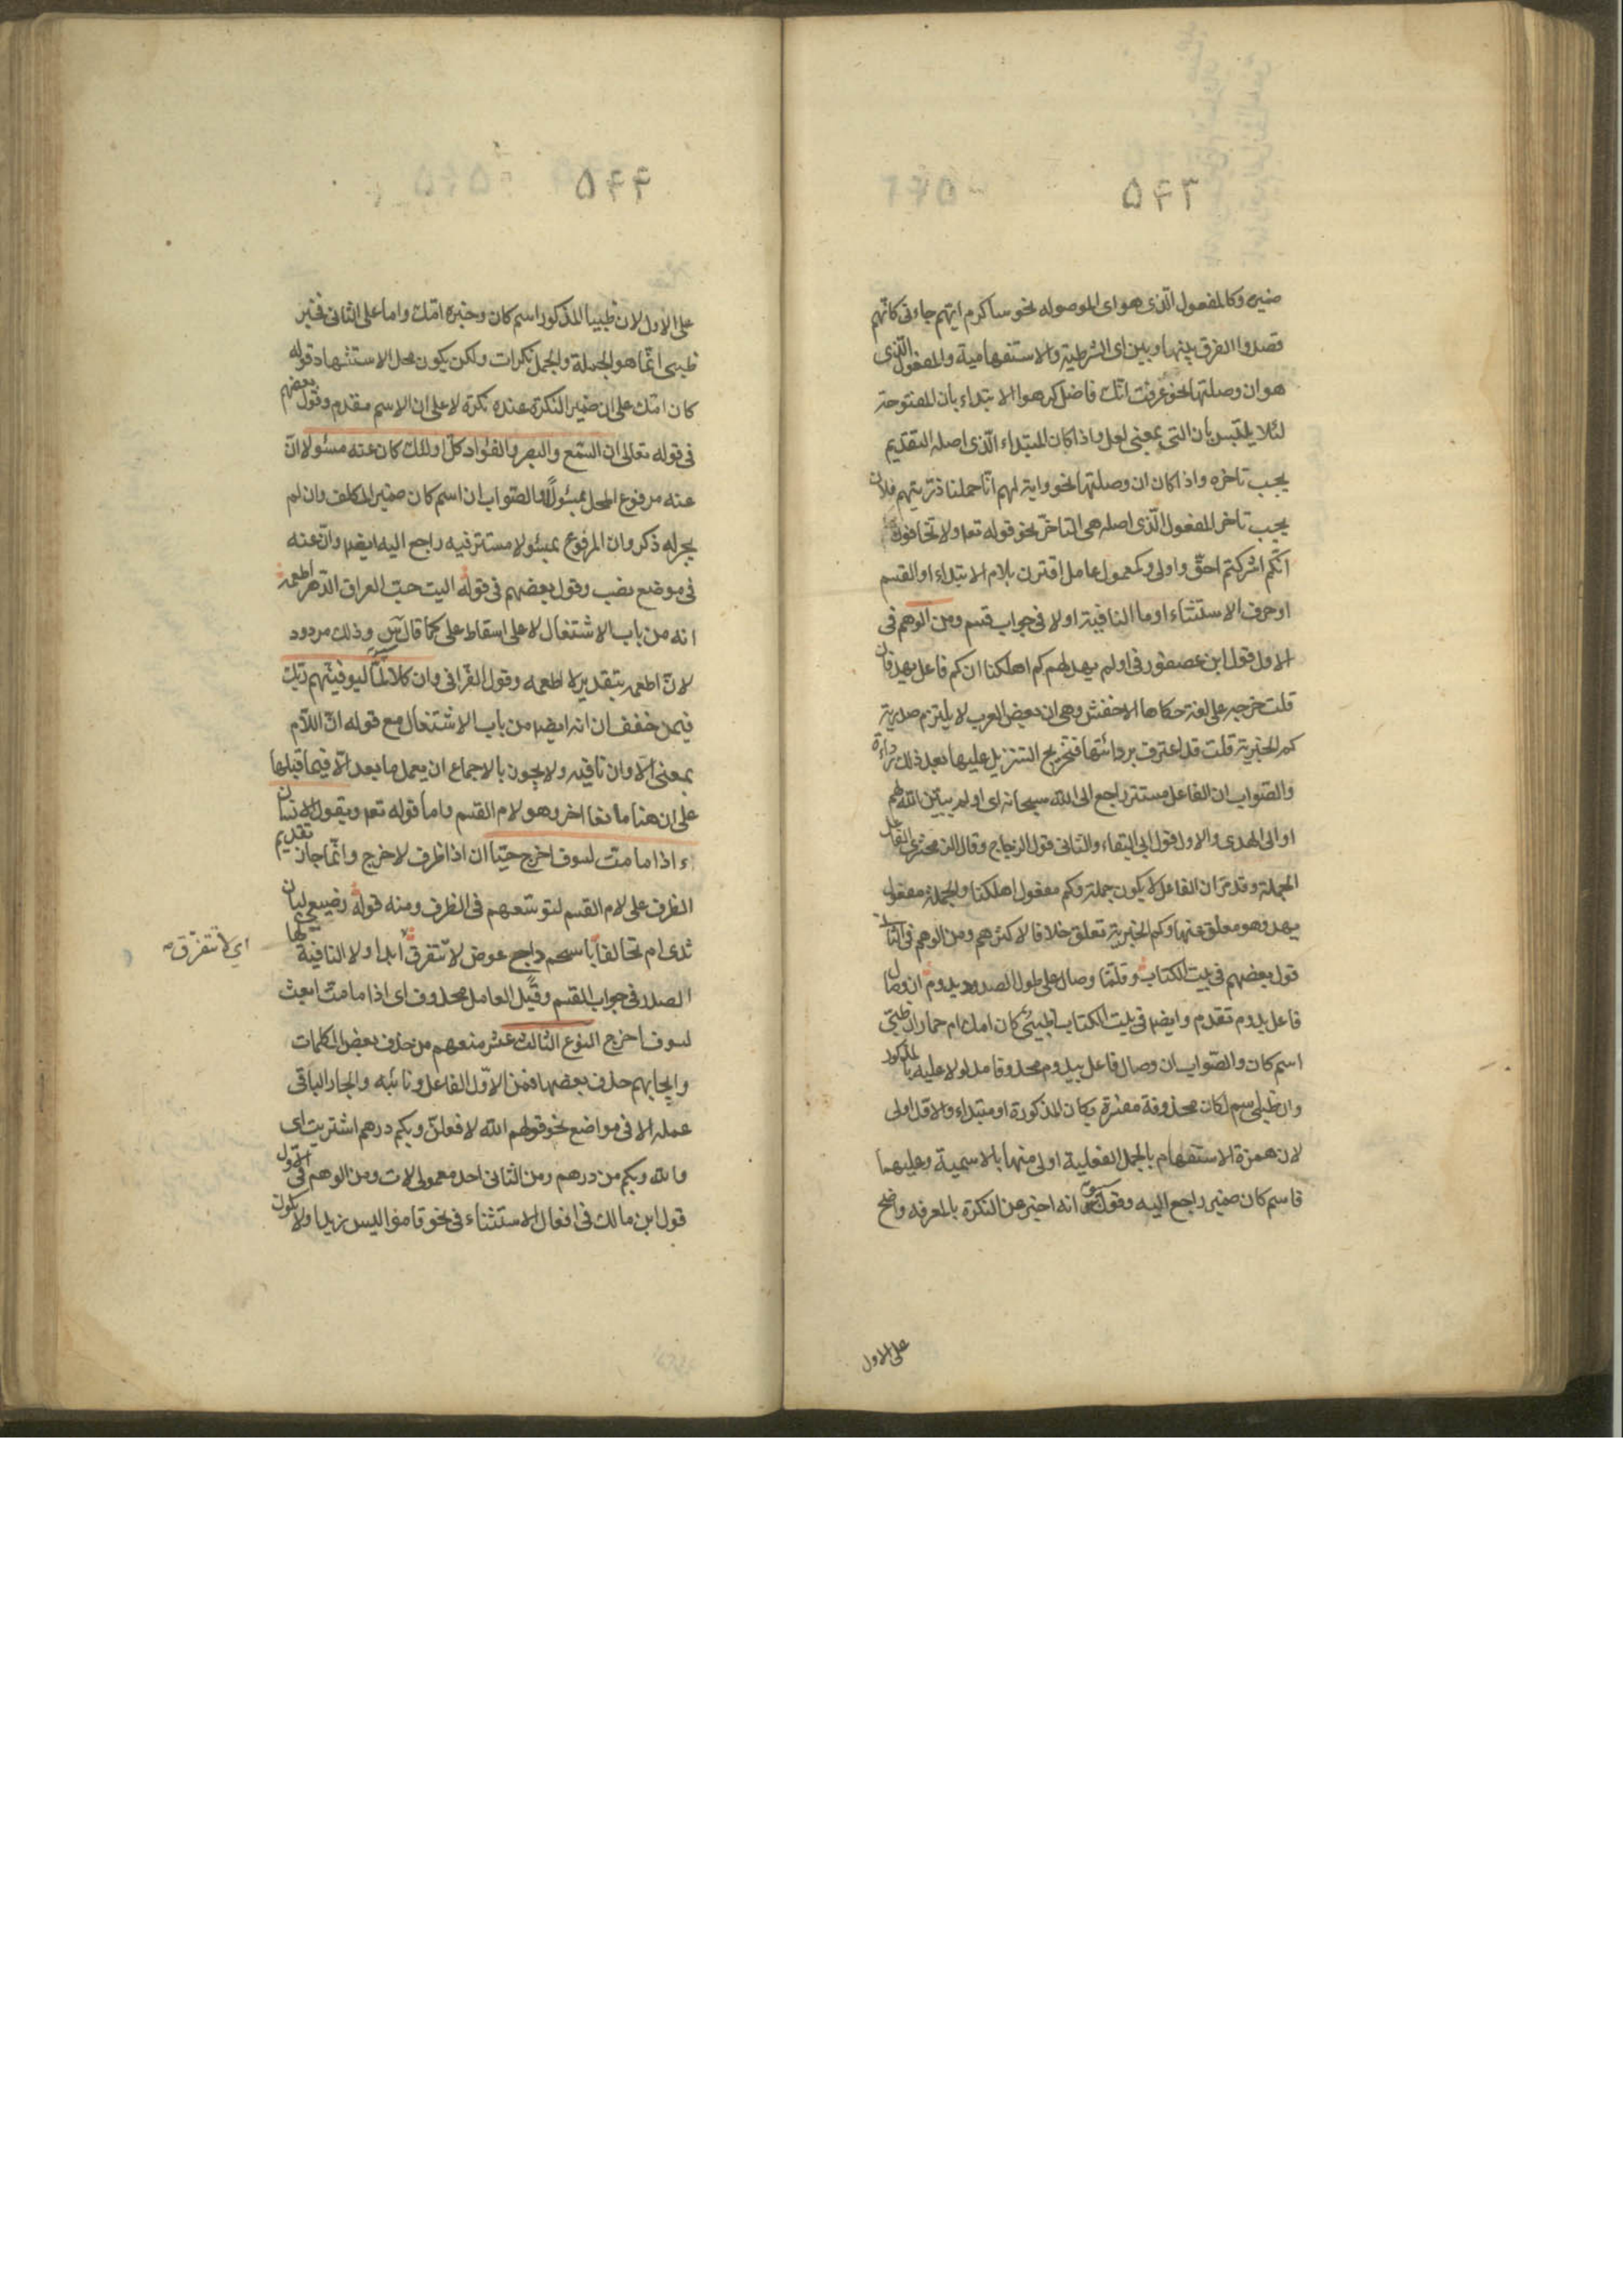 ۵۴۳
ضميره وكالمفعول الّذى هو اى الموصوله نحو ساكرم ايّهم جاءنى كانّهم
قصدوا الفرق بينها وبين اى الشرطية والاستفهامية والمفعول الّذى
هو ان وصلتها نحو عرفت انّك فاضل كرهوا الابتداء بأن المفتوحة
لئلا يلتبس بان التى بمعنى لعل واذا كان المبتداء الّذى اصله التقديم
يجب تاخره واذا كان ان وصلتها نحو واية لهم انّا حملنا ذريتهم فلان
يجب تاخر المفعول الّذى اصله هى التاخّر نحو قوله تعه ولا تخافون
انّكم اشركتم احقّ واولى وكمعمول عامل اقترن بلام الابتداء او القسم
او حرف الاستثناء او ما النافية او لا فى جواب قسم ومن الوهم فى
الاول قول ابن عصفور فى اولم يهد لهم كم اهلكنا ان كم فاعل يهد فان
قلت خرجه على لغة حكاها الاخفش وهى ان بعض العرب لا يلتزم صدرية
كم الخبرية قلت قد اعترف بردائتها فتخريج التنزيل عليها بعد ذلك رداءة
والصّواب ان الفاعل مستتر راجع الى الله سبحانه اى اولم يبيّن الله لهم
او الى الهدى والاول قول ابى البقاء والثانى قول الزجاج وقال الزمخشرى الفاعل
الجملة وقد مرّ ان الفاعل لا يكون جملة وكم مفعول اهلكنا والجملة مفعول
يهد وهو معلق عنها وكم الخبرية تعلق خلافا لاكثرهم ومن الوهم فى الثانى
قول بعضهم فى بيت الكتاب وقلّما وصال على طول الصدود يدوم ان وصال
فاعل يدوم تقدم وايضا فى بيت الكتاب اظبىٌ كان امك ام حمار ان ظبى
اسم كان والصّواب ان وصال فاعل بيدوم محذوفا مدلولا عليه بالمذكور
وان ظبى اسم لكان محذوفة مفسّرة بكان المذكورة او مبتداء والاول اولى
لان همزة الاستفهام بالجمل الفعلية اولى منها بالاسمية وعليهما
فاسم كان ضمير راجع اليه وقول س انه اخبر عن النكرة بالمعرفه واضح
على الاول
۵۴۴
على الاول لان ظبيا المذكور اسم كان وخبره امّك واما على الثانى فخبر
ظبى انّما هو الجملة والجمل نكرات ولكن يكون محل الاستشهاد قوله
كان امّك على ان ضمير النكرة عنده نكرة لا على ان الاسم مقدم وقول بعضهم
فى قوله تعالى ان السّمع والبصر والفؤاد كلّ اولئك كان عنه مسئولا انّ
عنه مرفوع المحل بمسئولًا والصّواب ان اسم كان ضمير المكلف وان لم
يجر له ذكر وان المرفوع بمسئولا مستتر فيه راجع اليه ايضا وانّ عنه
فى موضع نصب وقول بعضهم فى قوله اليت حبّ العراق الدّهر اطعمه
انه من باب الاشتغال لا على اسقاط على كما قال س وذلك مردود
لانّ اطعمه بتقدير لا اطعمه وقول الفرّا فى وان كلا لمّا ليوفينّهم ربّك
فيمن خفف ان انه ايضا من باب الاشتغال مع قوله انّ اللّام
بمعنى الّا وان نافيه ولا يجوز بالاجماع ان يعمل ما بعد الّا فيما قبلها
على ان هنا مانعا اخر وهو لام القسم واما قوله تعه ويقول الانسان
ءاذا ما متّ لسوف اخرج حيّا ان اذا ظرف لاخرج وانّما جاز تقديم
الظرف على لام القسم لتوسّعهم فى الظرف ومنه قوله رضيعى لبان
ثدى ام تحالفا باسحم داج عوض لا نتفرق ابدا ولا النافية لها
اي لا نتفرّق ص
الصدر فى جواب القسم وقيل العامل محذوف اى اذا ما متّ ابعث
لسوف اخرج النوع الثالث عشر منعهم من حذف بعض الكلمات
وايجابهم حذف بعضها فمن الاوّل الفاعل ونائبه والجار الباقى
عمله الا فى مواضع نحو قولهم الله لافعلنّ وبكم درهم اشتريت اى
والله وبكم من درهم ومن الثانى احد معمولى لات ومن الوهم فى الاول
قول ابن مالك فى افعال الاستثناء فى نحو قاموا ليس زيدا ولا يكون